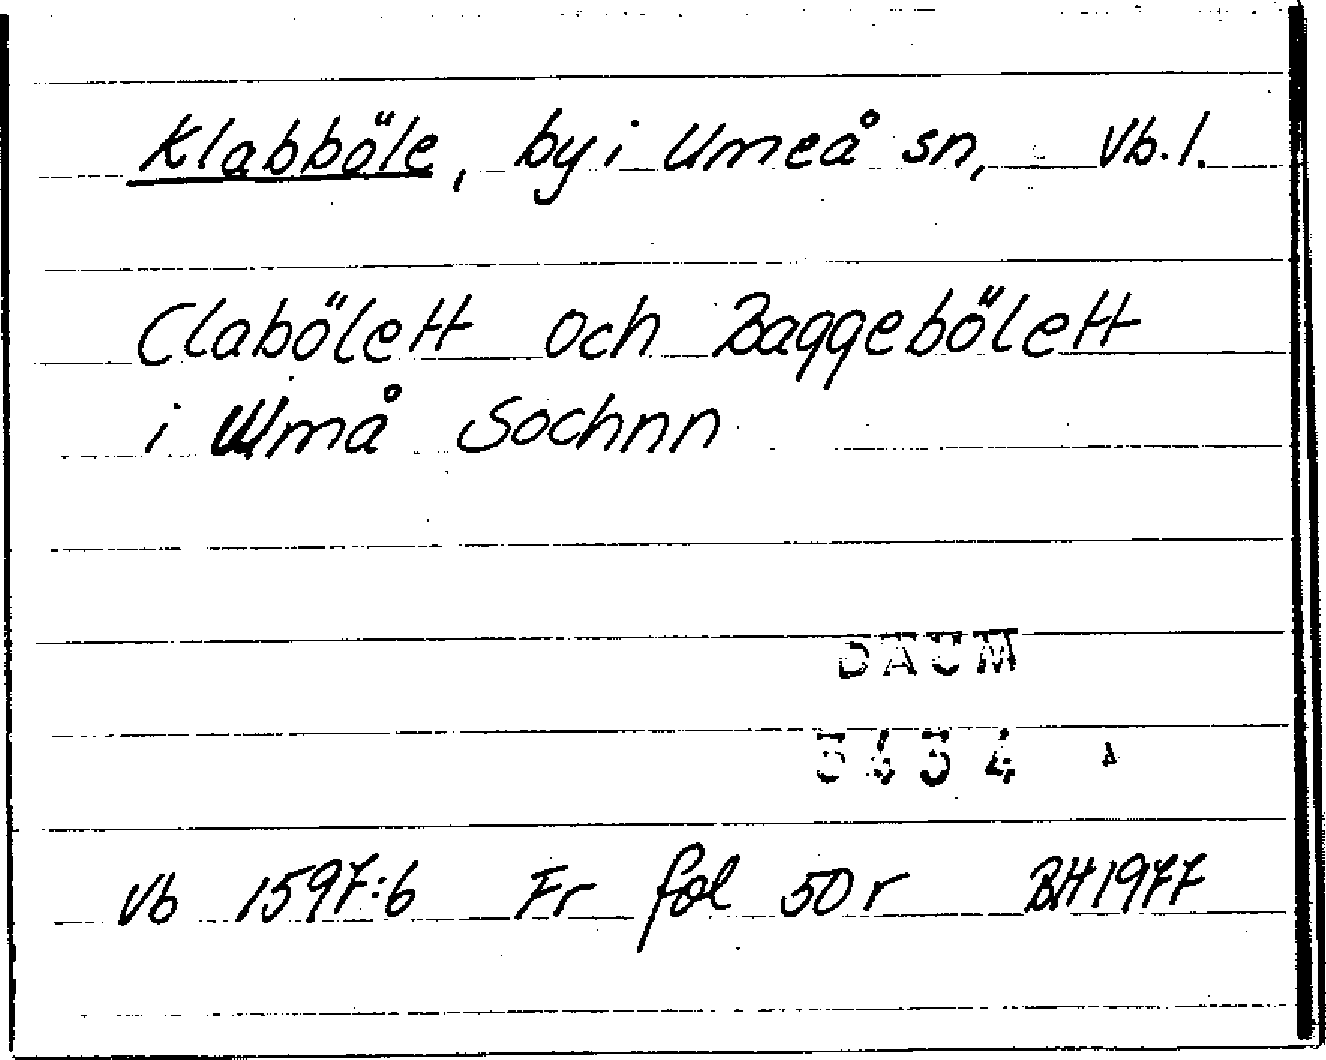 Klabböle, by i Umeå sn, Vb. l.
Clabölett och Baggebölett
i Umå Sochnn
DAUM
3434
Vb 1597:6 Fr fol 50 r BH 1977